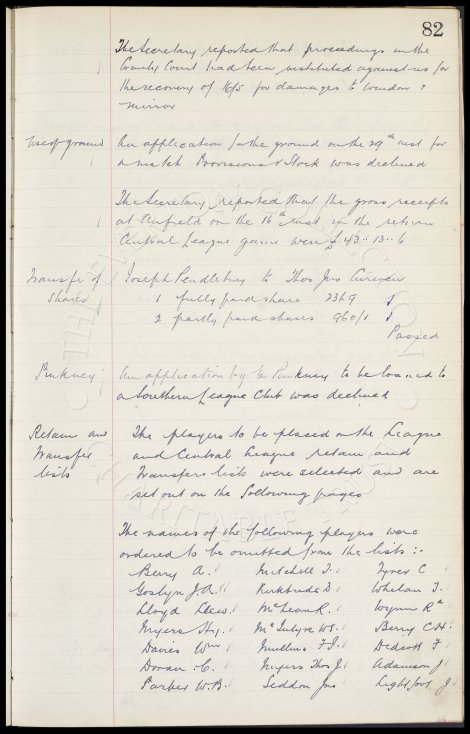 82
The Secretary reported that proceedings in the
County Court had been instituted against us for
the recovery of 16/5 for damages to window &
mirror
Use of ground
An application for the ground on the 29th inst for
a match Provisions & Stock was declined
The Secretary reported that the gross receipts
at Anfield on the 16th inst in the return
Central League game were £43-13-6
Transfer of
Shares
Joseph Pendlebury to Thos Jno Curwen
1 fully paid share 2369
2 partly paid shares 960/1
Passed
Pinkney
An application by E Pinkney to be loaned to
a Southern League Club was declined
Retain and
Transfer
lists
The players to be placed on the League
and Central League retain and
Transfers lists were selected and are
set out on the following pages
The names of the following players were
ordered to be omitted from the lists :-
Berry A. Mitchell T. Tyrer C
Goslyn J.A. Kirkbride D Whelan T.
Lloyd Llew. McLean R. Wynn Rd
Myers Hy. McIntyre WS. Berry C.H.
Davies Wm Mullins F.J. Didcott F
Doran C. Myers Thos J. Adamson J
Parker W.B. Seddon Jas Lightfoot J